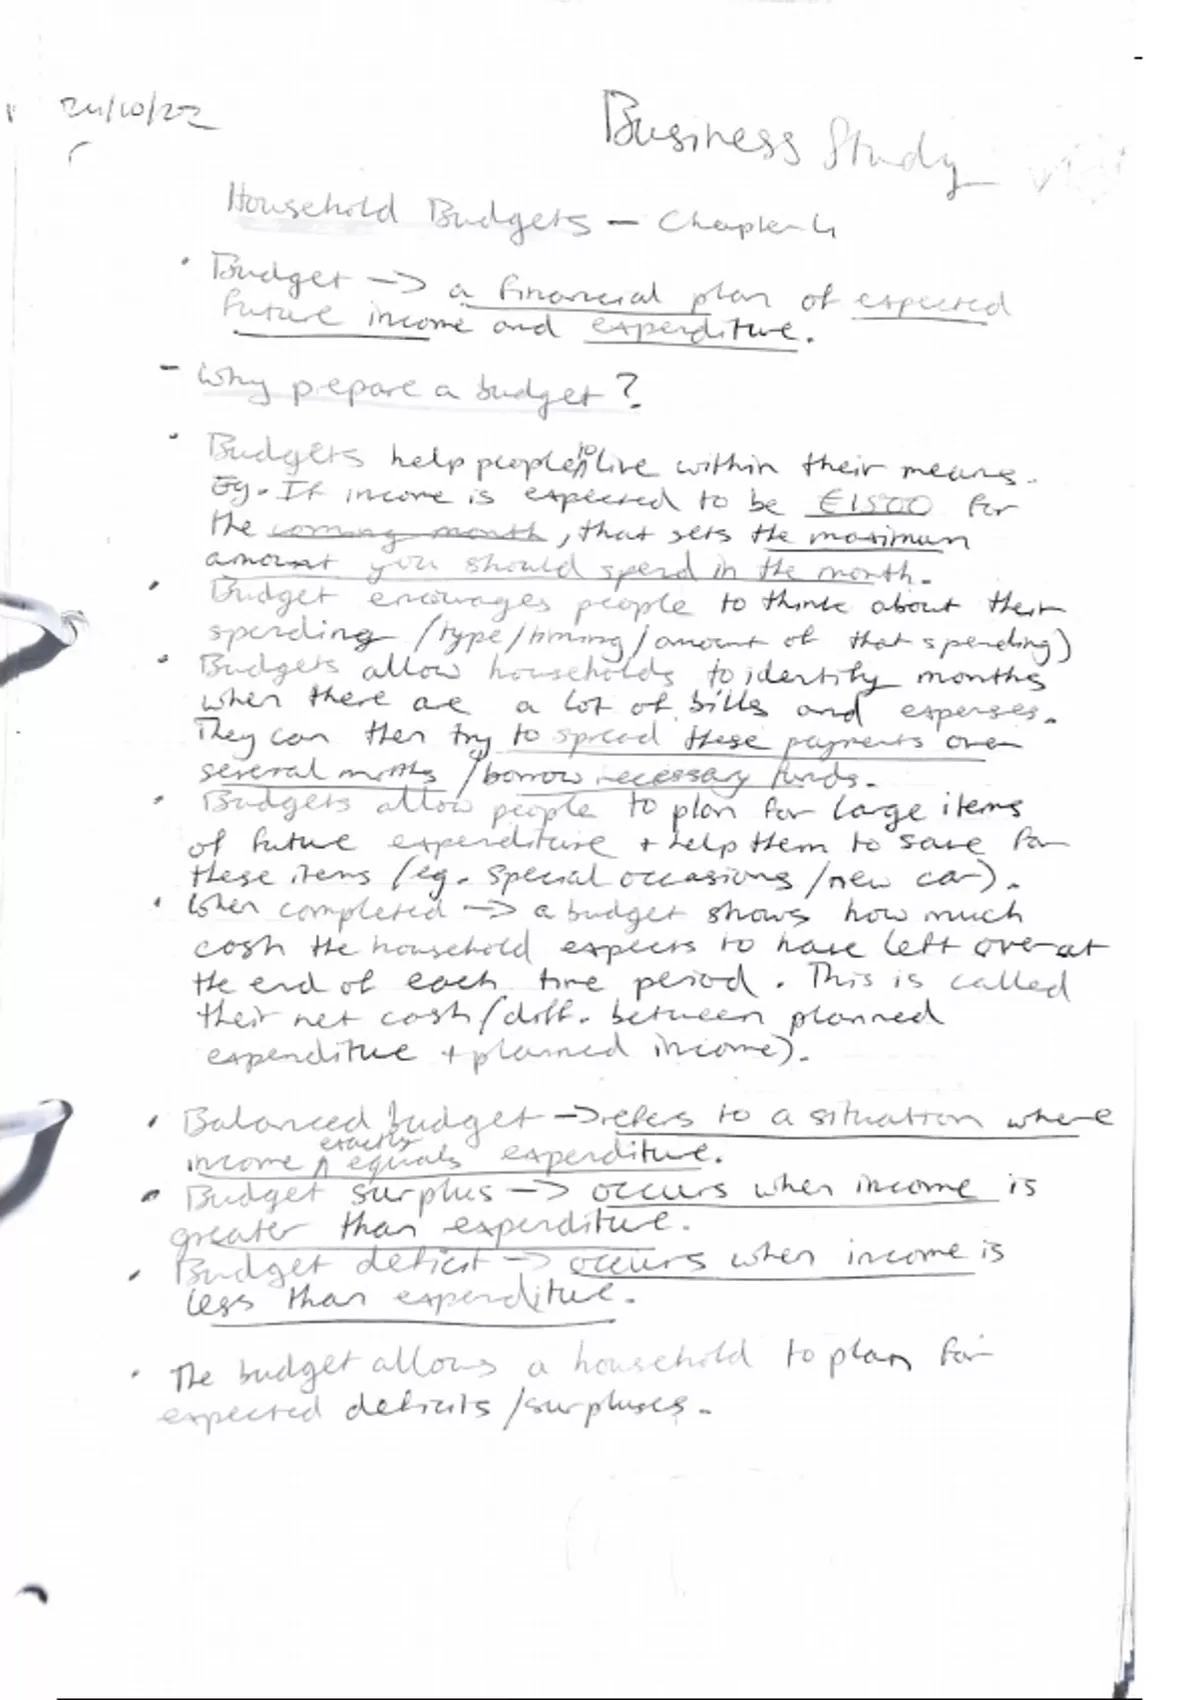 24/10/22
Business Study
Household Budgets – Chapter 4
• Budget -> a financial plan of expected
future income and expenditure.
- Why prepare a budget?
• Budgets help people to live within their means.
Eg. If income is expected to be €1500 for
the coming month, that sets the maximum
amount you should spend in the month.
• Budget encourages people to think about their
spending (type/timing/amount of that spending)
• Budgets allow households to identify months
when there are a lot of bills and expenses.
They can then try to spread these payments over
several months /borrow necessary funds.
• Budgets allow people to plan for large items
of future expenditure + help them to save for
these items (eg. special occasions/new car).
• When completed -> a budget shows how much
cash the household expects to have left over at
the end of each time period. This is called
their net cash (diff. between planned
expenditue + planned income).
• Balanced budget -> refers to a situation where
income exactly equals expenditure.
• Budget surplus -> occurs when income is
greater than expenditure.
• Budget deficit -> occurs when income is
less than expenditue.
• The budget allows a household to plan for
expected deficits /surpluses.